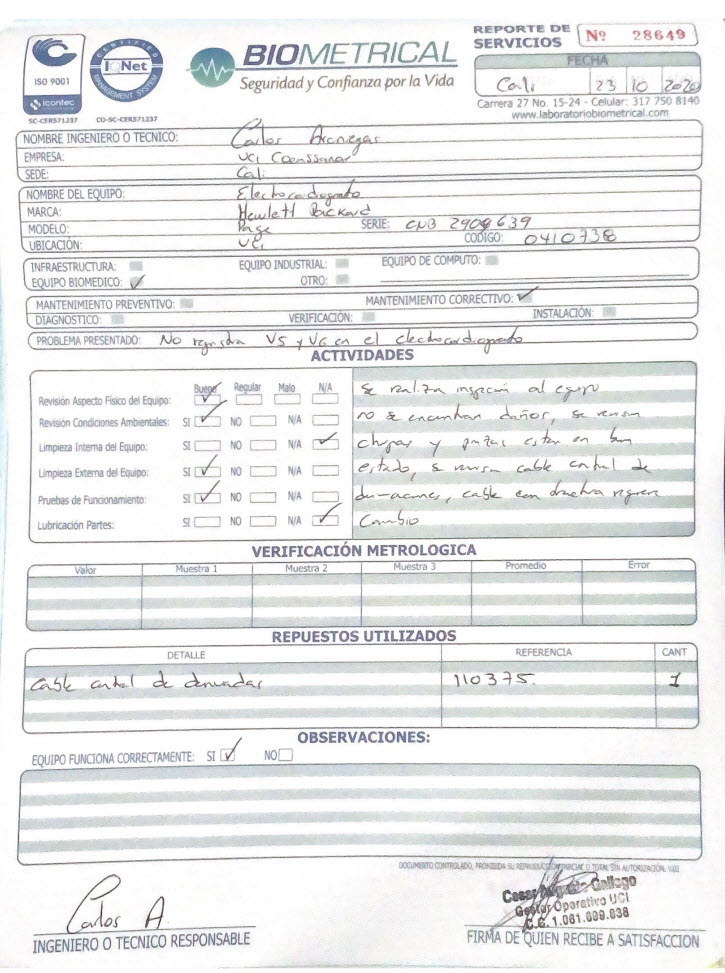 ISO 9001
icontec
SC-CER571237
CERTIFIED
IQNet
MANAGEMENT SYSTEM
CO-SC-CER571237
BIOMETRICAL
Seguridad y Confianza por la Vida
REPORTE DE SERVICIOS Nº 28649
FECHA
Cali 23 10 2020
Carrera 27 No. 15-24 - Celular: 317 750 8140
www.laboratoriobiometrical.com
NOMBRE INGENIERO O TECNICO: Carlos Arciniegas
EMPRESA: UCI
SEDE: Cali
NOMBRE DEL EQUIPO: Electrocardiografo
MARCA: Hewlett Packard
MODELO: Page SERIE: CNB 2909639
UBICACIÓN: UCI CODIGO: 0410738
INFRAESTRUCTURA: EQUIPO INDUSTRIAL: EQUIPO DE COMPUTO:
EQUIPO BIOMEDICO: ✓ OTRO:
MANTENIMIENTO PREVENTIVO: MANTENIMIENTO CORRECTIVO: ✓
DIAGNOSTICO: VERIFICACIÓN: INSTALACIÓN:
PROBLEMA PRESENTADO: No registra V5 y V6 en el electrocardiografo
ACTIVIDADES
Bueno Regular Malo N/A
Revisión Aspecto Físico del Equipo: ✓
Revisión Condiciones Ambientales: SI ✓ NO N/A
Limpieza Interna del Equipo: SI NO N/A ✓
Limpieza Externa del Equipo: SI ✓ NO N/A
Pruebas de Funcionamiento: SI ✓ NO N/A
Lubricación Partes: SI NO N/A ✓
se realiza inspección al equipo
no se encuentran daños, se revisan
chupas y pinzas estan en buen
estado, se revisa cable central de
derivaciones, cable requiere
Cambio
VERIFICACIÓN METROLOGICA
Valor Muestra 1 Muestra 2 Muestra 3 Promedio Error
REPUESTOS UTILIZADOS
DETALLE REFERENCIA CANT
Cable central de derivadas 110375. 1
OBSERVACIONES:
EQUIPO FUNCIONA CORRECTAMENTE: SI ✓ NO
DOCUMENTO CONTROLADO, PROHIBIDA SU REPRODUCCION PARCIAL O TOTAL SIN AUTORIZACIÓN.
Carlos A.
INGENIERO O TECNICO RESPONSABLE
Cesar Gallego
Gestor Operativo UCI
FIRMA DE QUIEN RECIBE A SATISFACCION